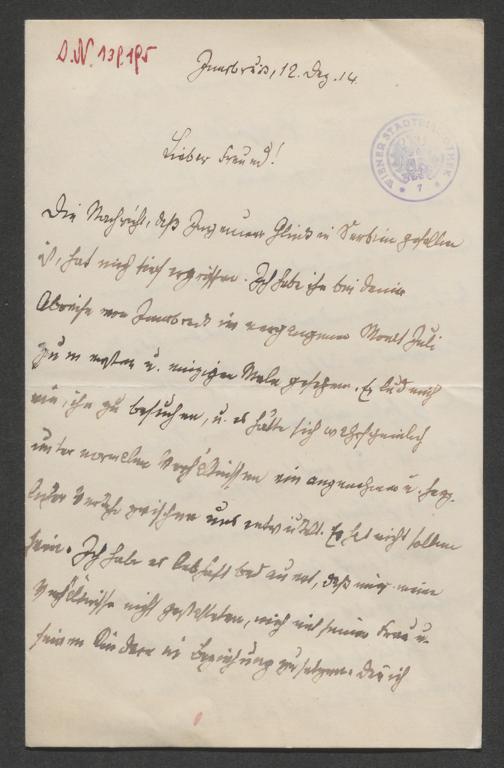 J.N. 139.195
Innsbruck, 12. Dez. 14.
WIENER STADTBIBLIOTHEK
Lieber Freund!
Die Nachricht, daß Ingenieur Glück in Serbien gefallen
ist, hat mich tief ergriffen. Ich habe ihn bei deiner
Abreise von Innsbruck im vergangenen Monat Juli
zum ersten u. einzigen Male gesehen. Er lud mich
ein, ihn zu besuchen, u. es hätte sich wahrscheinlich
unter normalen Verhältnissen ein angenehmer u. herz-
licher Verkehr zwischen uns entwickelt. Es hat nicht sollen
sein. Ich habe es lebhaft bedauert, daß mir meine
Verhältnisse nicht gestatteten, mich mit seiner Frau u.
seinen Kindern in Beziehung zu setzen. Da ich